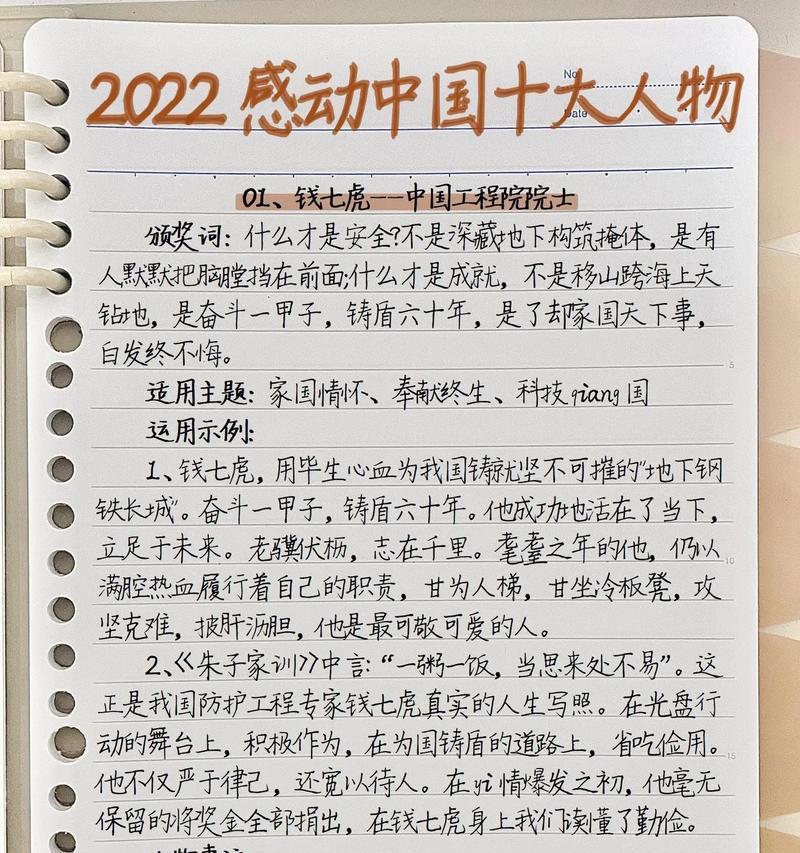 2022感动中国十大人物
No
Date
01、钱七虎——中国工程院院士
颁奖词：什么才是安全？不是深藏地下构筑掩体，是有
人默默把胸膛挡在前面；什么才是成就，不是移山跨海上天
钻地，是奋斗一甲子，铸盾六十年，是了却家国天下事，
白发终不悔。
5
适用主题：家国情怀、奉献终生、科技qiang国
运用示例：
1、钱七虎，用毕生心血为我国铸就坚不可摧的“地下钢
铁长城”。奋斗一甲子，铸盾六十年。他成功地活在了当下，
立足于未来。老骥伏枥，志在千里。耄耋之年的他，仍以
10
满腔热血履行着自己的职责，甘为人梯，甘坐冷板凳，攻
坚克难，披肝沥胆，他是最可敬可爱的人。
2、《朱子家训》中言：“一粥一饭，当思来处不易”。这
正是我国防护工程专家钱七虎真实的人生写照。在光盘行
动的舞台上，积极作为，在为国铸盾的道路上，省吃俭用。
15
他不仅严于律己，还宽以待人。在yi情爆发之初，他毫无
保留的将奖金全部捐出，在钱七虎身上我们读懂了勤俭。